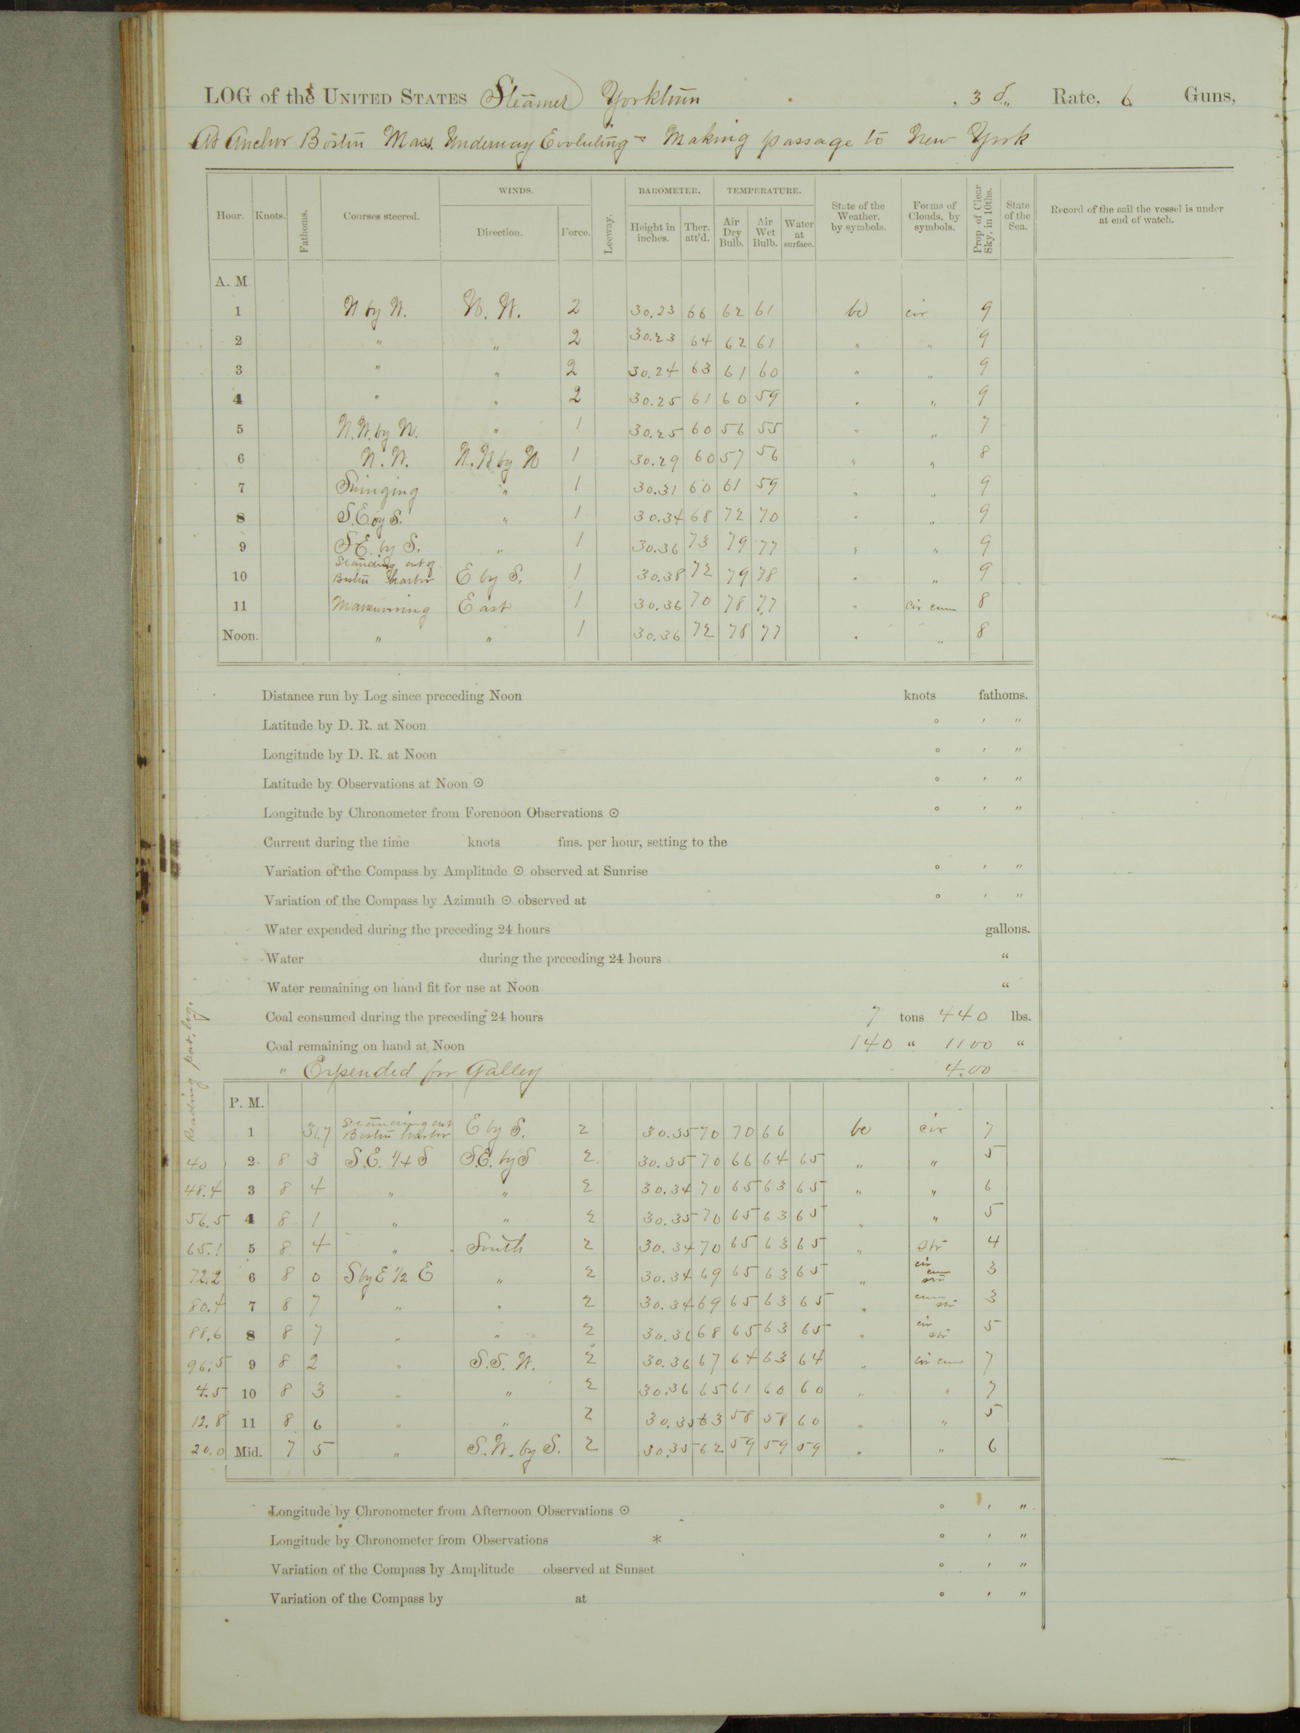 LOG of the UNITED STATES Steamer Yorktown . , 3 d„ Rate, 6 Guns,
At Anchor Boston Mass. Underway Evoluting & Making passage to New York
Hour. Knots. Fathoms. Courses steered. WINDS. Direction. Force. Leeway. BAROMETER. Height in inches. Ther. att'd. TEMPERATURE. Air Dry Bulb. Air Wet Bulb. Water at surface. State of the Weather, by symbols. Forms of Clouds, by symbols. Prop of Clear Sky, in 10ths. State of the Sea. Record of the sail the vessel is under at end of watch.
A. M
1 N by W. N. W. 2 30.23 66 62 61 bc cir 9
2 " " 2 30.23 64 62 61 " " 9
3 " " 2 30.24 63 61 60 " " 9
4 " " 2 30.25 61 60 59 " " 9
5 N.W. by W. " 1 30.25 60 56 55 " " 7
6 N. W. N.W by W 1 30.29 60 57 56 " " 8
7 Swinging " 1 30.31 60 61 59 " " 9
8 S.E by S. " 1 30.34 68 72 70 " " 9
9 S E. by S. " 1 30.36 73 79 77 " " 9
10 Standing out of Boston Harbor E by S. 1 30.38 72 79 78 " " 9
11 Manuvering East 1 30.36 70 78 77 " cir cum 8
Noon. " " 1 30.36 72 78 77 " " 8
Distance run by Log since preceding Noon knots fathoms.
Latitude by D. R. at Noon ° ′ ″
Longitude by D. R. at Noon ° ′ ″
Latitude by Observations at Noon ⊙ ° ′ ″
Longitude by Chronometer from Forenoon Observations ⊙ ° ′ ″
Current during the time knots fms. per hour, setting to the
Variation of the Compass by Amplitude ⊙ observed at Sunrise ° ′ ″
Variation of the Compass by Azimuth ⊙ observed at ° ′ ″
Water expended during the preceding 24 hours gallons.
Water during the preceding 24 hours "
Water remaining on hand fit for use at Noon "
Coal consumed during the preceding 24 hours 7 tons 440 lbs.
Coal remaining on hand at Noon 140 " 1100 "
" Expended for Galley 400
Reading pat. log.
P. M.
1 31.7 Standing out Boston Harbor E by S. 2 30.35 70 70 66 bc cir 7
40 2 8 3 S.E. 1/4 S S.E. by S 2 30.35 70 66 64 65 " " 5
48.4 3 8 4 " " 2 30.34 70 65 63 65 " " 6
56.5 4 8 1 " " 2 30.35 70 65 63 65 " " 5
65.1 5 8 4 " South 2 30.34 70 65 63 65 " str 4
72.2 6 8 0 S by E 1/2 E " 2 30.34 69 65 63 65 " cir cum str 3
80.4 7 8 7 " " 2 30.34 69 65 63 65 " cum str 3
88.6 8 8 7 " " 2 30.36 68 65 63 65 " cir str 5
96.5 9 8 2 " S.S. W. 2 30.36 67 64 63 64 " cir cum 7
4.5 10 8 3 " " 2 30.36 65 61 60 60 " " 7
12.8 11 8 6 " " 2 30.35 63 58 58 60 " " 5
20.0 Mid. 7 5 " S. W. by S. 2 30.35 62 59 59 59 " " 6
Longitude by Chronometer from Afternoon Observations ⊙ ° ′ ″
Longitude by Chronometer from Observations * ° ′ ″
Variation of the Compass by Amplitude observed at Sunset ° ′ ″
Variation of the Compass by at ° ′ ″